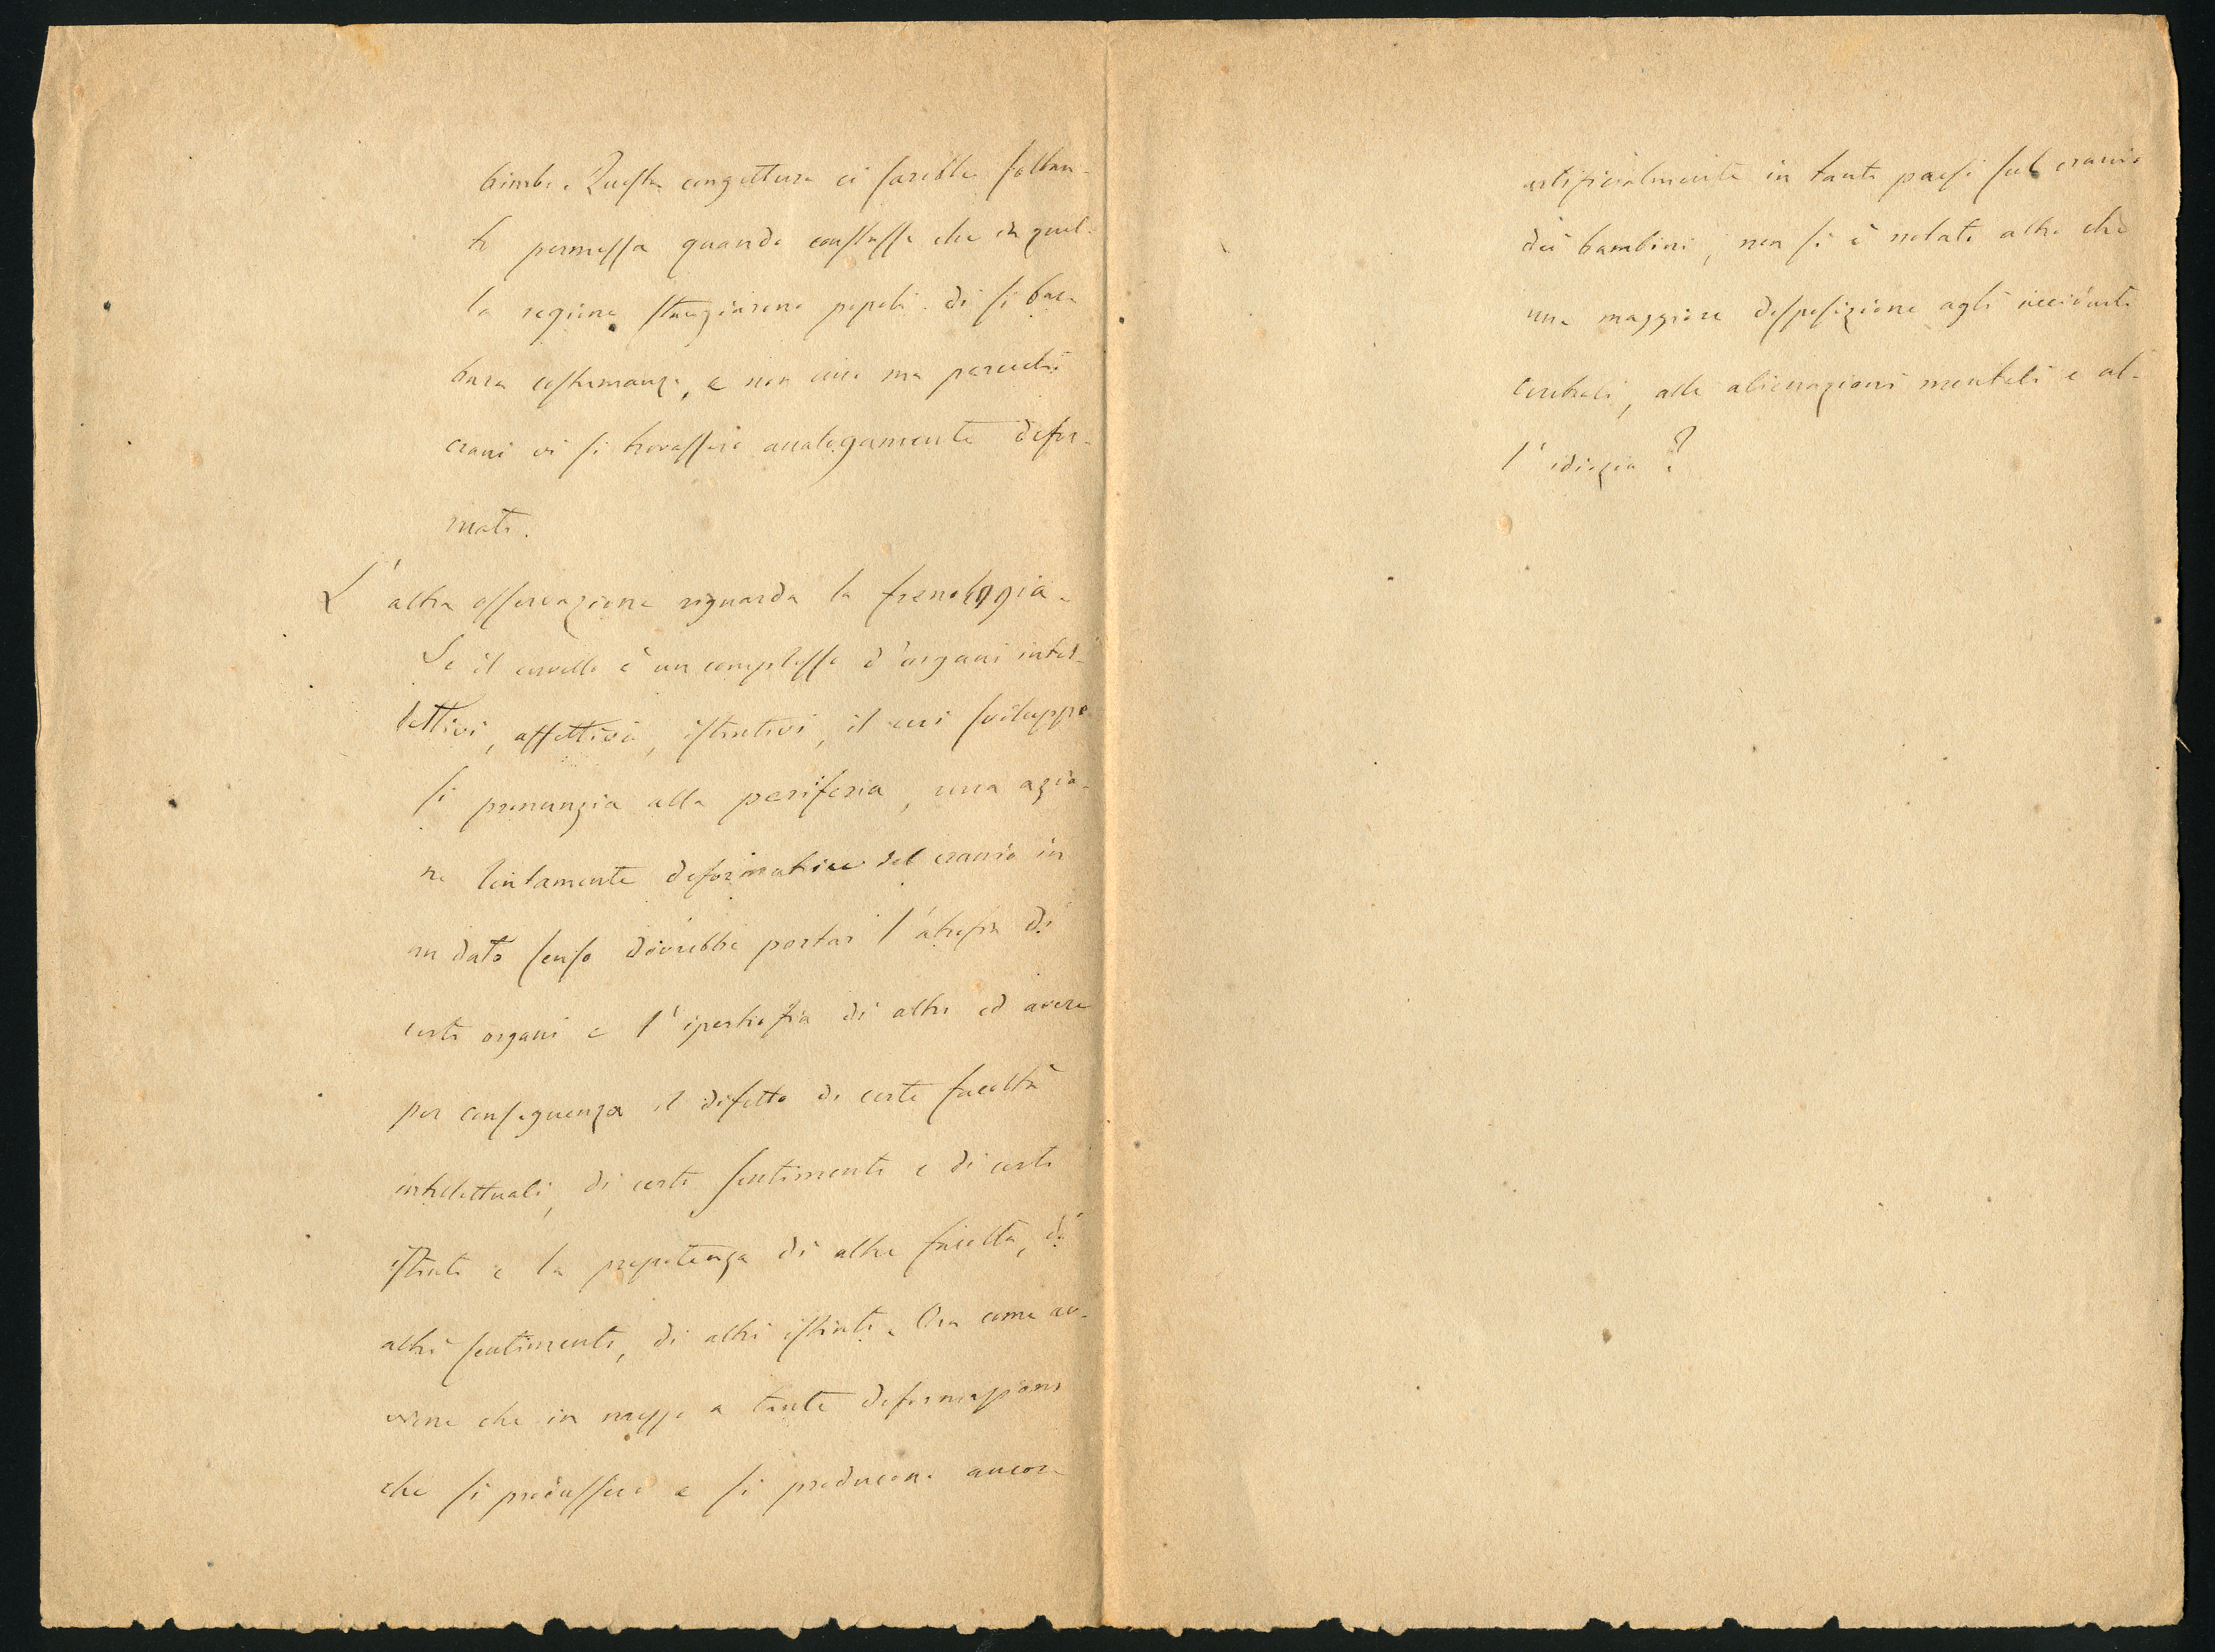 bimbi. Questa congettura ci sarebbe soltan-
to permessa quando constasse che in quel-
la regione stanziarono popoli di sì bar-
bara costumanza, e non uno ma parecchi
crani vi si trovassero analogamente defor-
mati.
L'altra osservazione riguarda la frenologia.
Se il cervello è un complesso d'organi intel-
lettivi, affettivi, istintivi, il cui sviluppo
si pronunzia alla periferia, una azio-
ne lentamente deformatrice del cranio in
un dato senso dovrebbe portar l'atrofia di
certi organi e l'ipertrofia di altri ed avere
per conseguenza il difetto di certe facoltà
intellettuali, di certi sentimenti e di certi
istinti e la prepotenza di altre facoltà, di
altri sentimenti, di altri istinti. Ora come av-
viene che in mezzo a tante deformazioni
che si produssero e si producono ancora
artificialmente in tanti paesi sul cranio
dei bambini, non si è notato altro che
una maggiore disposizione agli accidenti
cerebrali, alle alienazioni mentali e al-
l'idiozia?